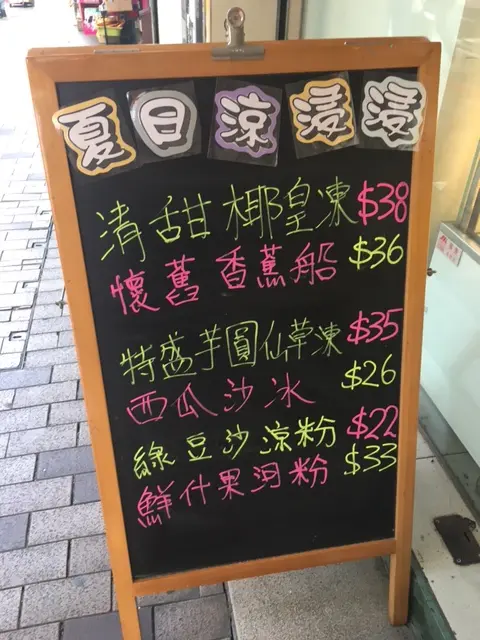 夏日涼浸浸
清甜椰皇凍 $38
懷舊香蕉船 $36
特盛芋圓仙草凍 $35
西瓜沙冰 $26
綠豆沙涼粉 $22
鮮什果涼粉 $33